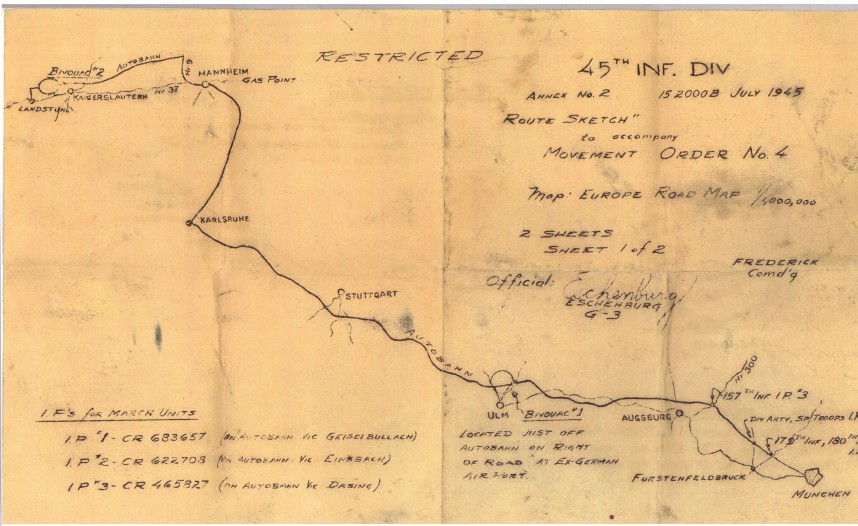 RESTRICTED
45TH INF. DIV
ANNEX No. 2 152000B JULY 1945
ROUTE SKETCH"
to accompany
MOVEMENT ORDER No. 4
Map: EUROPE ROAD MAP 1/1,000,000
2 SHEETS
SHEET 1 of 2
FREDERICK
Comd'g
Official:
ESCHENBURG
G-3
BIVOUAC #2
AUTOBAHN
Nr 9
MANNHEIM
GAS POINT
KAISERSLAUTERN
Nr 37
KARLSRUHE
STUTTGART
AUTOBAHN
ULM
BIVOUAC #1
LOCATED JUST OFF
AUTOBAHN ON RIGHT
OF ROAD AT EX-GERMAN
AIR PORT.
AUGSBURG
Nr 300
157TH INF I.P. #3
DIV ARTY, SP. TROOPS I.
179TH INF, 180TH
FURSTENFELDBRUCK
MUNCHEN
I.P'S for MARCH UNITS
I.P #1 - CR 683657 (ON AUTOBAHN VIC GEISELBULLACH)
I.P #2 - CR 622708 (ON AUTOBAHN VIC EINSBACH)
I.P #3 - CR 465827 (ON AUTOBAHN VIC DASING)